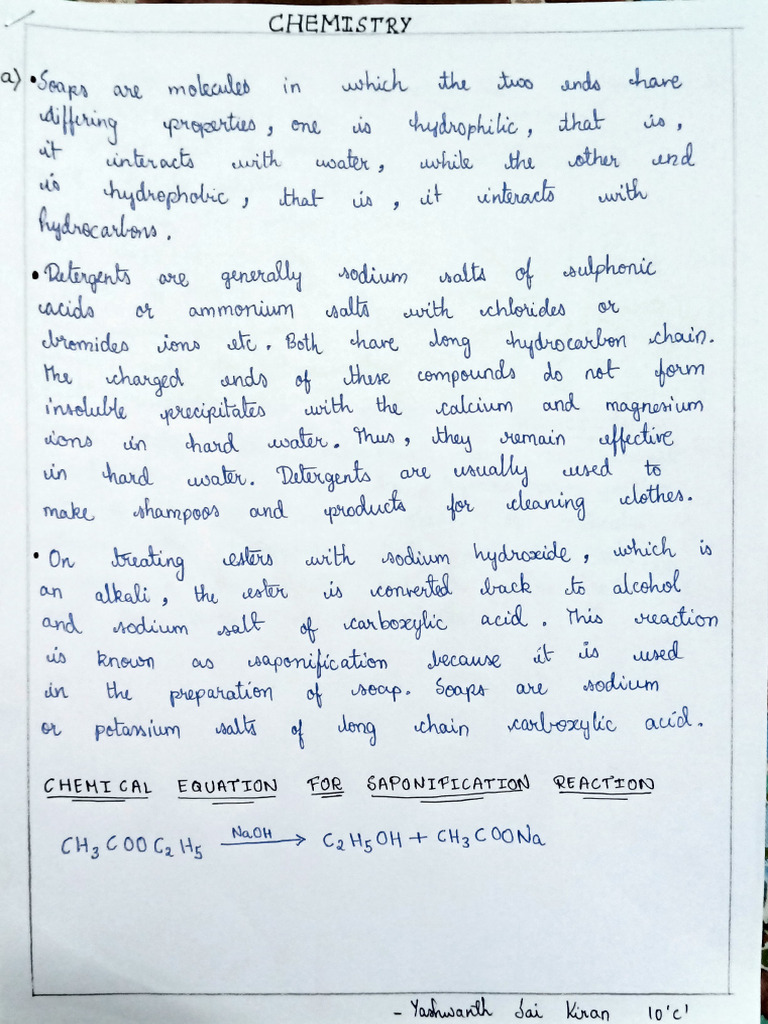 CHEMISTRY
a) • Soaps are molecules in which the two ends have
differing properties, one is hydrophilic, that is,
it interacts with water, while the other end
is hydrophobic, that is, it interacts with
hydrocarbons.
• Detergents are generally sodium salts of sulphonic
acids or ammonium salts with chlorides or
bromides ions etc. Both have long hydrocarbon chain.
The charged ends of these compounds do not form
insoluble precipitates with the calcium and magnesium
ions in hard water. Thus, they remain effective
in hard water. Detergents are usually used to
make shampoos and products for cleaning clothes.
• On treating esters with sodium hydroxide, which is
an alkali, the ester is converted back to alcohol
and sodium salt of carboxylic acid. This reaction
is known as saponification because it is used
in the preparation of soap. Soaps are sodium
or potassium salts of long chain carboxylic acid.
CHEMICAL EQUATION FOR SAPONIFICATION REACTION
CH₃COOC₂H₅ —NaOH→ C₂H₅OH + CH₃COONa
- Yashwanth Sai Kiran 10'C'